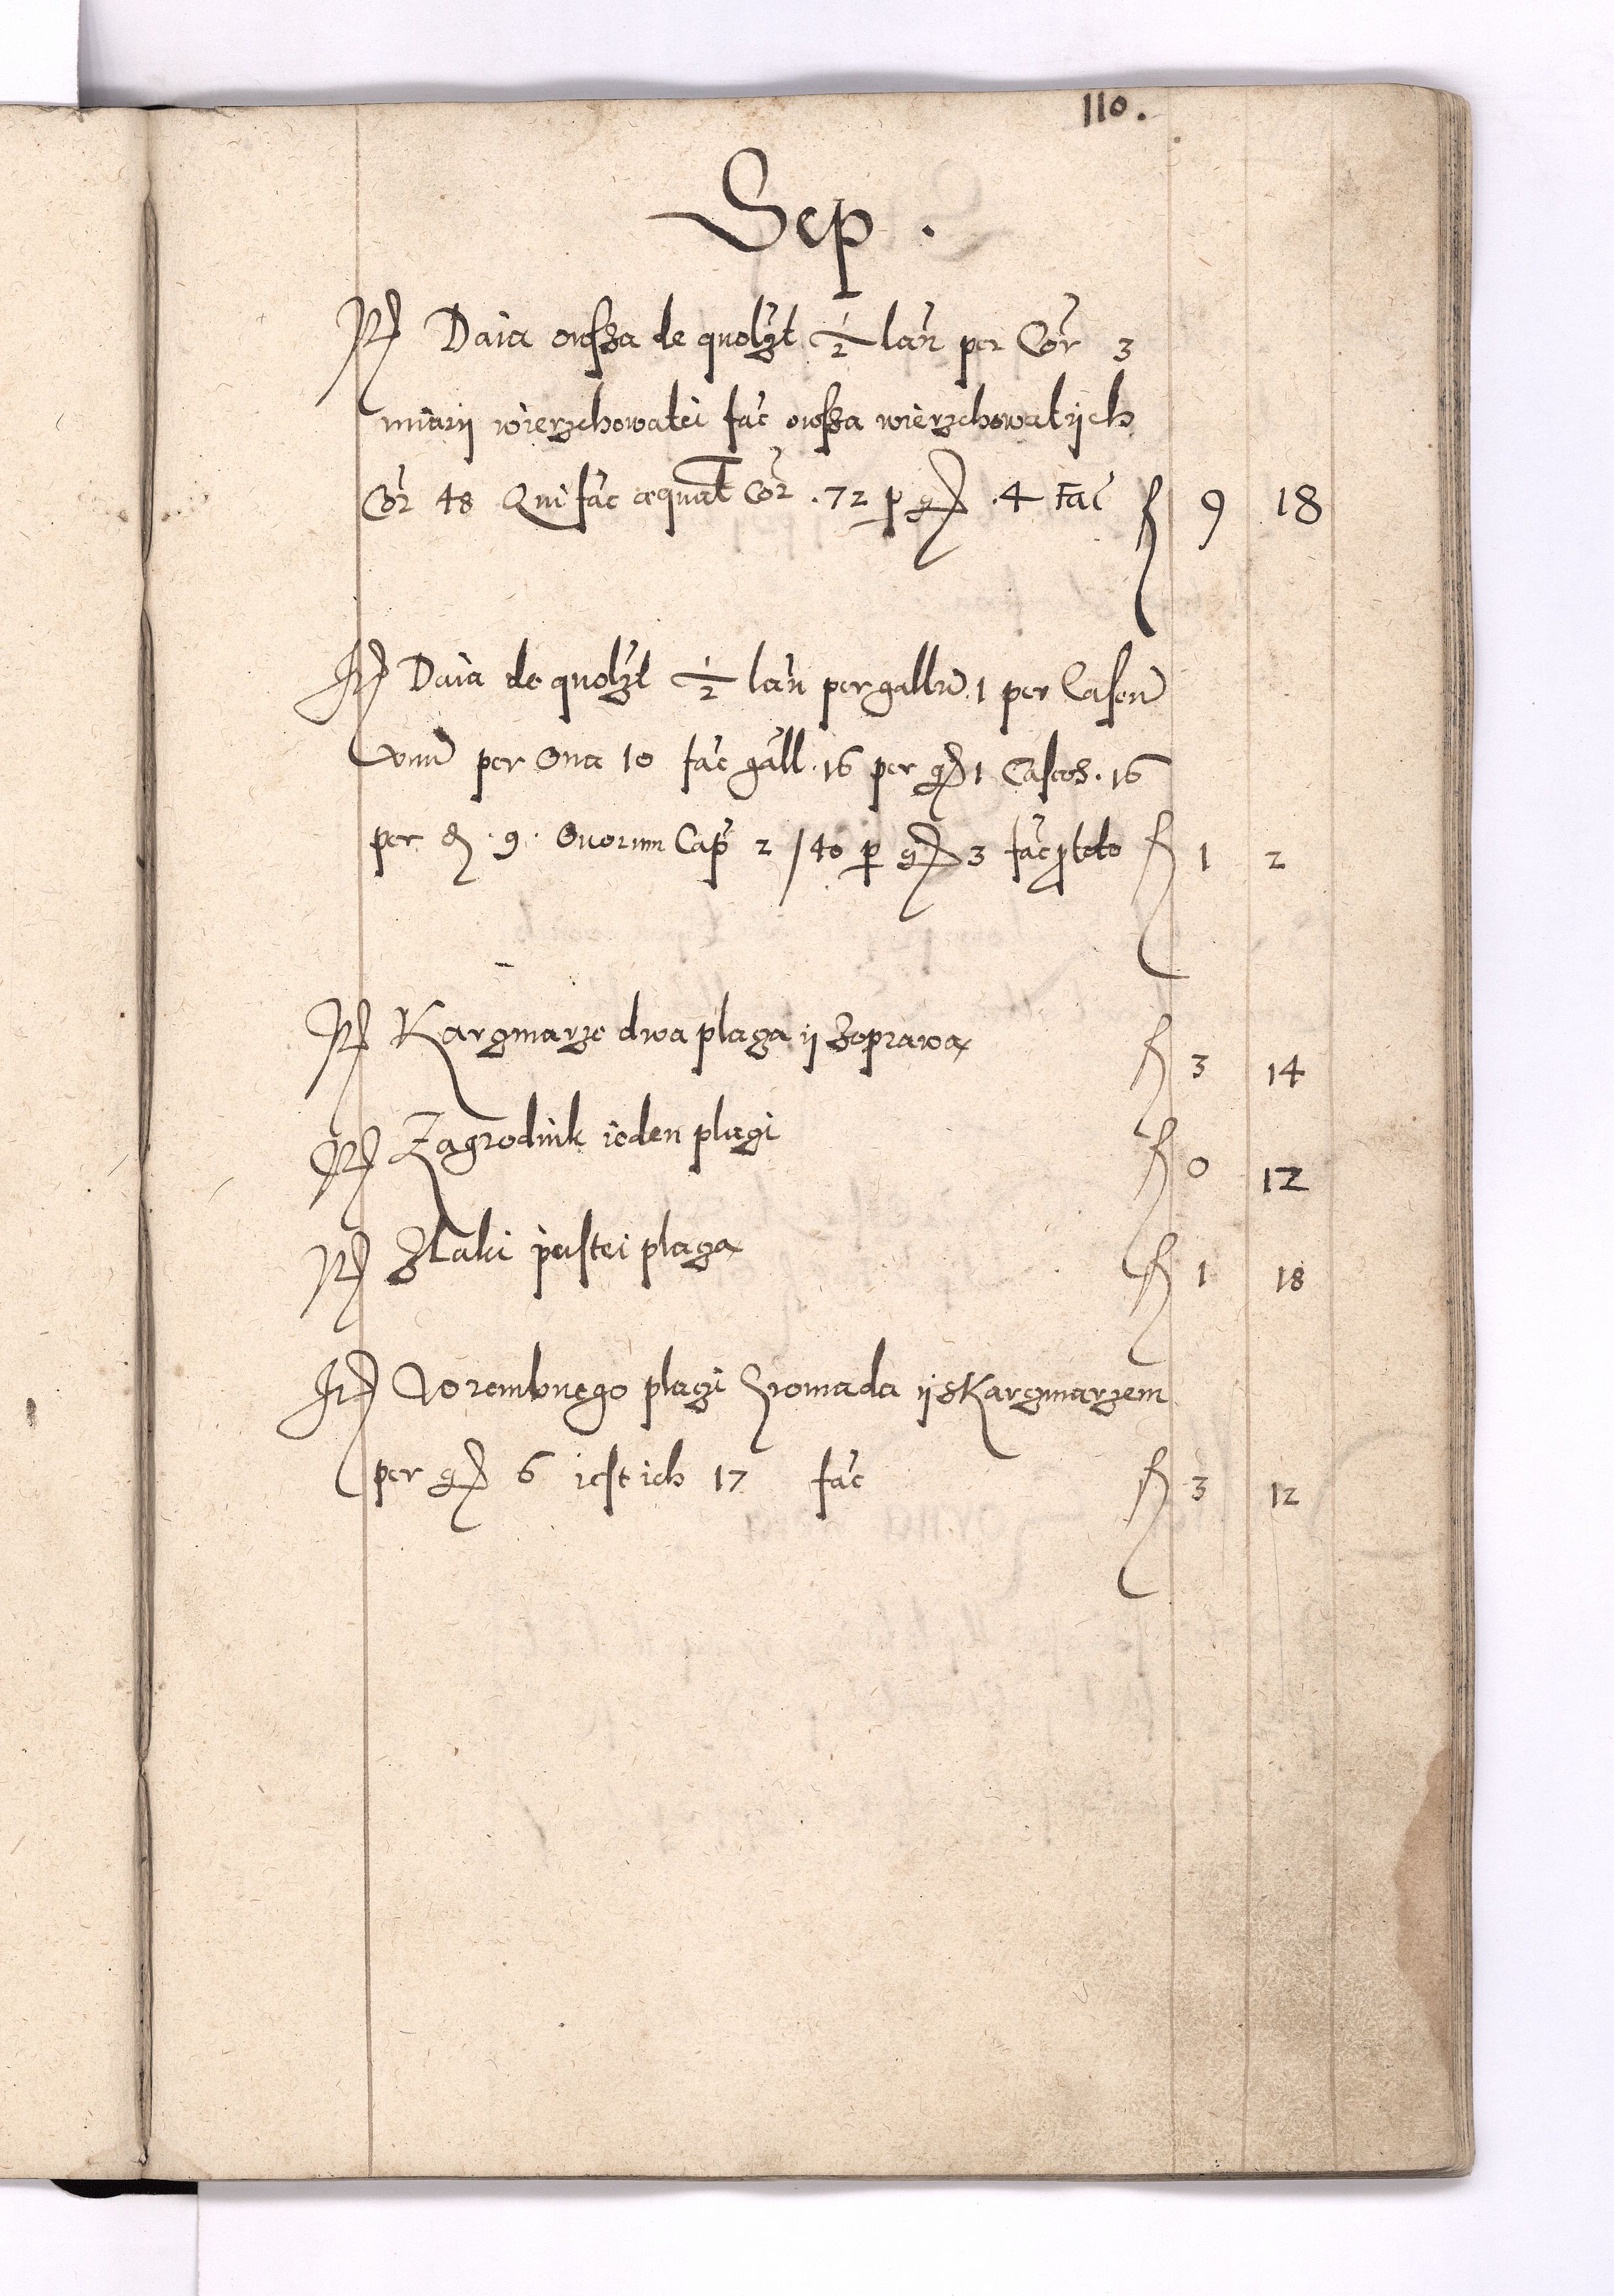 110.
Sep.
Jt Daia owsza de quolȝt ½ lan̄ per Cor̄ 3
miarÿ wierzchowatei fac̄ owsza wierzchowatÿch
Cor̄ 48 Qui fac̄ æqual̄ Cor̄ .72 p gr .4 fac̄ fl 9 18
Jt Daia de quolȝt ½ lan̄ per gallū 1 per Caseū
vnū per Oua 10 fac̄ gall. 16 per gr 1 Caseos. 16
per d .9. Ouorum Cap̄ 2 / 40 p gr 3 fac̄ p toto fl 1 2
Jt Karczmarze dwa placza ÿ Zoprawa fl 3 14
Jt Zagrodnik ieden placzi fl 0 12
Jt Zlaki pustei placza fl 1 18
Jt Worembnego placzi Gromada ÿ sKarczmarzem
per gr 6 iest ich 17 fac̄ fl 3 12